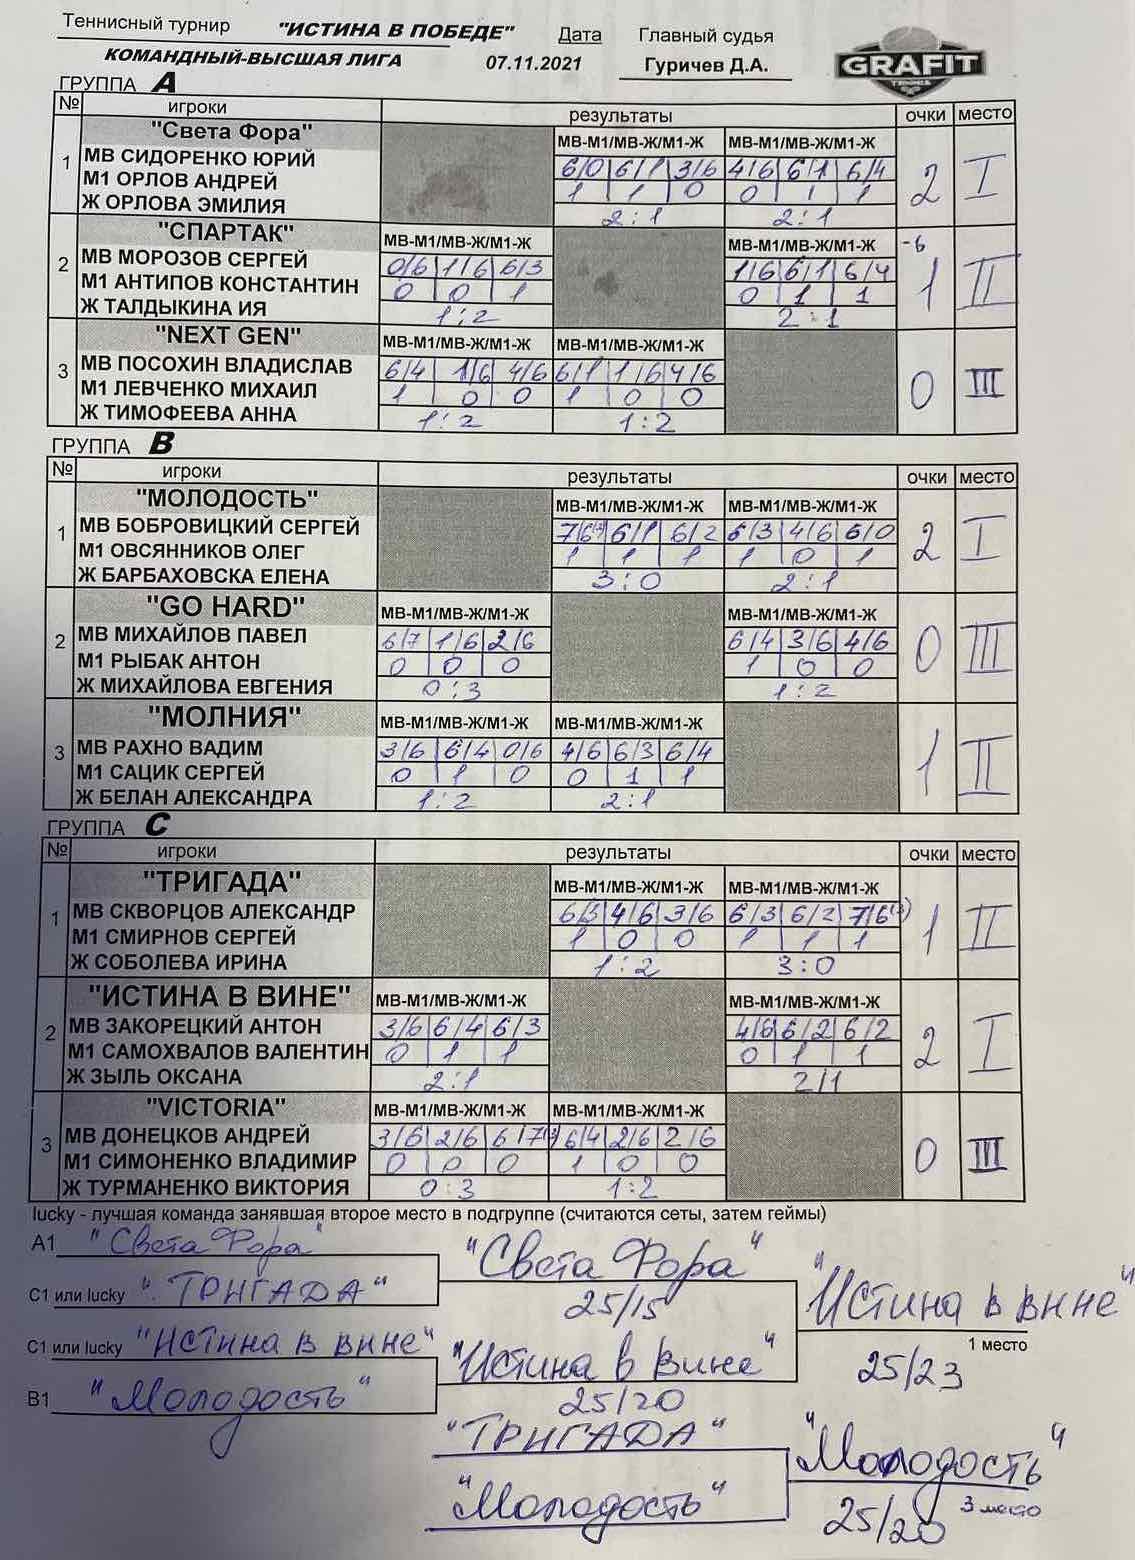 Теннисный турнир "ИСТИНА В ПОБЕДЕ" Дата Главный судья
КОМАНДНЫЙ-ВЫСШАЯ ЛИГА 07.11.2021 Гуричев Д.А. GRAFIT
ГРУППА A
№ игроки результаты очки место
"Света Фора" МВ-М1/МВ-Ж/М1-Ж МВ-М1/МВ-Ж/М1-Ж
1 МВ СИДОРЕНКО ЮРИЙ 6/0 6/1 3/6 4/6 6/1 6/4 2 I
М1 ОРЛОВ АНДРЕЙ 1 1 0 0 1 1
Ж ОРЛОВА ЭМИЛИЯ 2:1 2:1
"СПАРТАК" МВ-М1/МВ-Ж/М1-Ж МВ-М1/МВ-Ж/М1-Ж -6
2 МВ МОРОЗОВ СЕРГЕЙ 0/6 1/6 6/3 1/6 6/1 6/4 1 II
М1 АНТИПОВ КОНСТАНТИН 0 0 1 0 1 1
Ж ТАЛДЫКИНА ИЯ 1:2 2:1
"NEXT GEN" МВ-М1/МВ-Ж/М1-Ж МВ-М1/МВ-Ж/М1-Ж
3 МВ ПОСОХИН ВЛАДИСЛАВ 6/4 1/6 4/6 6/1 1/6 4/6 0 III
М1 ЛЕВЧЕНКО МИХАИЛ 1 0 0 1 0 0
Ж ТИМОФЕЕВА АННА 1:2 1:2
ГРУППА B
№ игроки результаты очки место
"МОЛОДОСТЬ" МВ-М1/МВ-Ж/М1-Ж МВ-М1/МВ-Ж/М1-Ж
1 МВ БОБРОВИЦКИЙ СЕРГЕЙ 7/6 6/1 6/2 6/3 4/6 6/0 2 I
М1 ОВСЯННИКОВ ОЛЕГ 1 1 1 1 0 1
Ж БАРБАХОВСКА ЕЛЕНА 3:0 2:1
"GO HARD" МВ-М1/МВ-Ж/М1-Ж МВ-М1/МВ-Ж/М1-Ж
2 МВ МИХАЙЛОВ ПАВЕЛ 6/7 1/6 2/6 6/4 3/6 4/6 0 III
М1 РЫБАК АНТОН 0 0 0 1 0 0
Ж МИХАЙЛОВА ЕВГЕНИЯ 0:3 1:2
"МОЛНИЯ" МВ-М1/МВ-Ж/М1-Ж МВ-М1/МВ-Ж/М1-Ж
3 МВ РАХНО ВАДИМ 3/6 6/4 0/6 4/6 6/3 6/4 1 II
М1 САЦИК СЕРГЕЙ 0 1 0 0 1 1
Ж БЕЛАН АЛЕКСАНДРА 1:2 2:1
ГРУППА C
№ игроки результаты очки место
"ТРИГАДА" МВ-М1/МВ-Ж/М1-Ж МВ-М1/МВ-Ж/М1-Ж
1 МВ СКВОРЦОВ АЛЕКСАНДР 6/3 4/6 3/6 6/3 6/2 7/6(3) 1 II
М1 СМИРНОВ СЕРГЕЙ 1 0 0 1 1 1
Ж СОБОЛЕВА ИРИНА 1:2 3:0
"ИСТИНА В ВИНЕ" МВ-М1/МВ-Ж/М1-Ж МВ-М1/МВ-Ж/М1-Ж
2 МВ ЗАКОРЕЦКИЙ АНТОН 3/6 6/4 6/3 4/6 6/2 6/2 2 I
М1 САМОХВАЛОВ ВАЛЕНТИН 0 1 1 0 1 1
Ж ЗЫЛЬ ОКСАНА 2:1 2/1
"VICTORIA" МВ-М1/МВ-Ж/М1-Ж МВ-М1/МВ-Ж/М1-Ж
3 МВ ДОНЕЦКОВ АНДРЕЙ 3/6 2/6 6/7(3) 6/4 2/6 2/6 0 III
М1 СИМОНЕНКО ВЛАДИМИР 0 0 0 1 0 0
Ж ТУРМАНЕНКО ВИКТОРИЯ 0:3 1:2
lucky - лучшая команда занявшая второе место в подгруппе (считаются сеты, затем геймы)
A1 "Света Фора"
"Света Фора"
C1 или lucky "ТРИГАДА" 25/15
"Истина в вине"
C1 или lucky "Истина в вине" 1 место
"Истина в вине" 25/23
B1 "Молодость" 25/20
"ТРИГАДА"
"Молодость"
"Молодость" 3 место
25/20